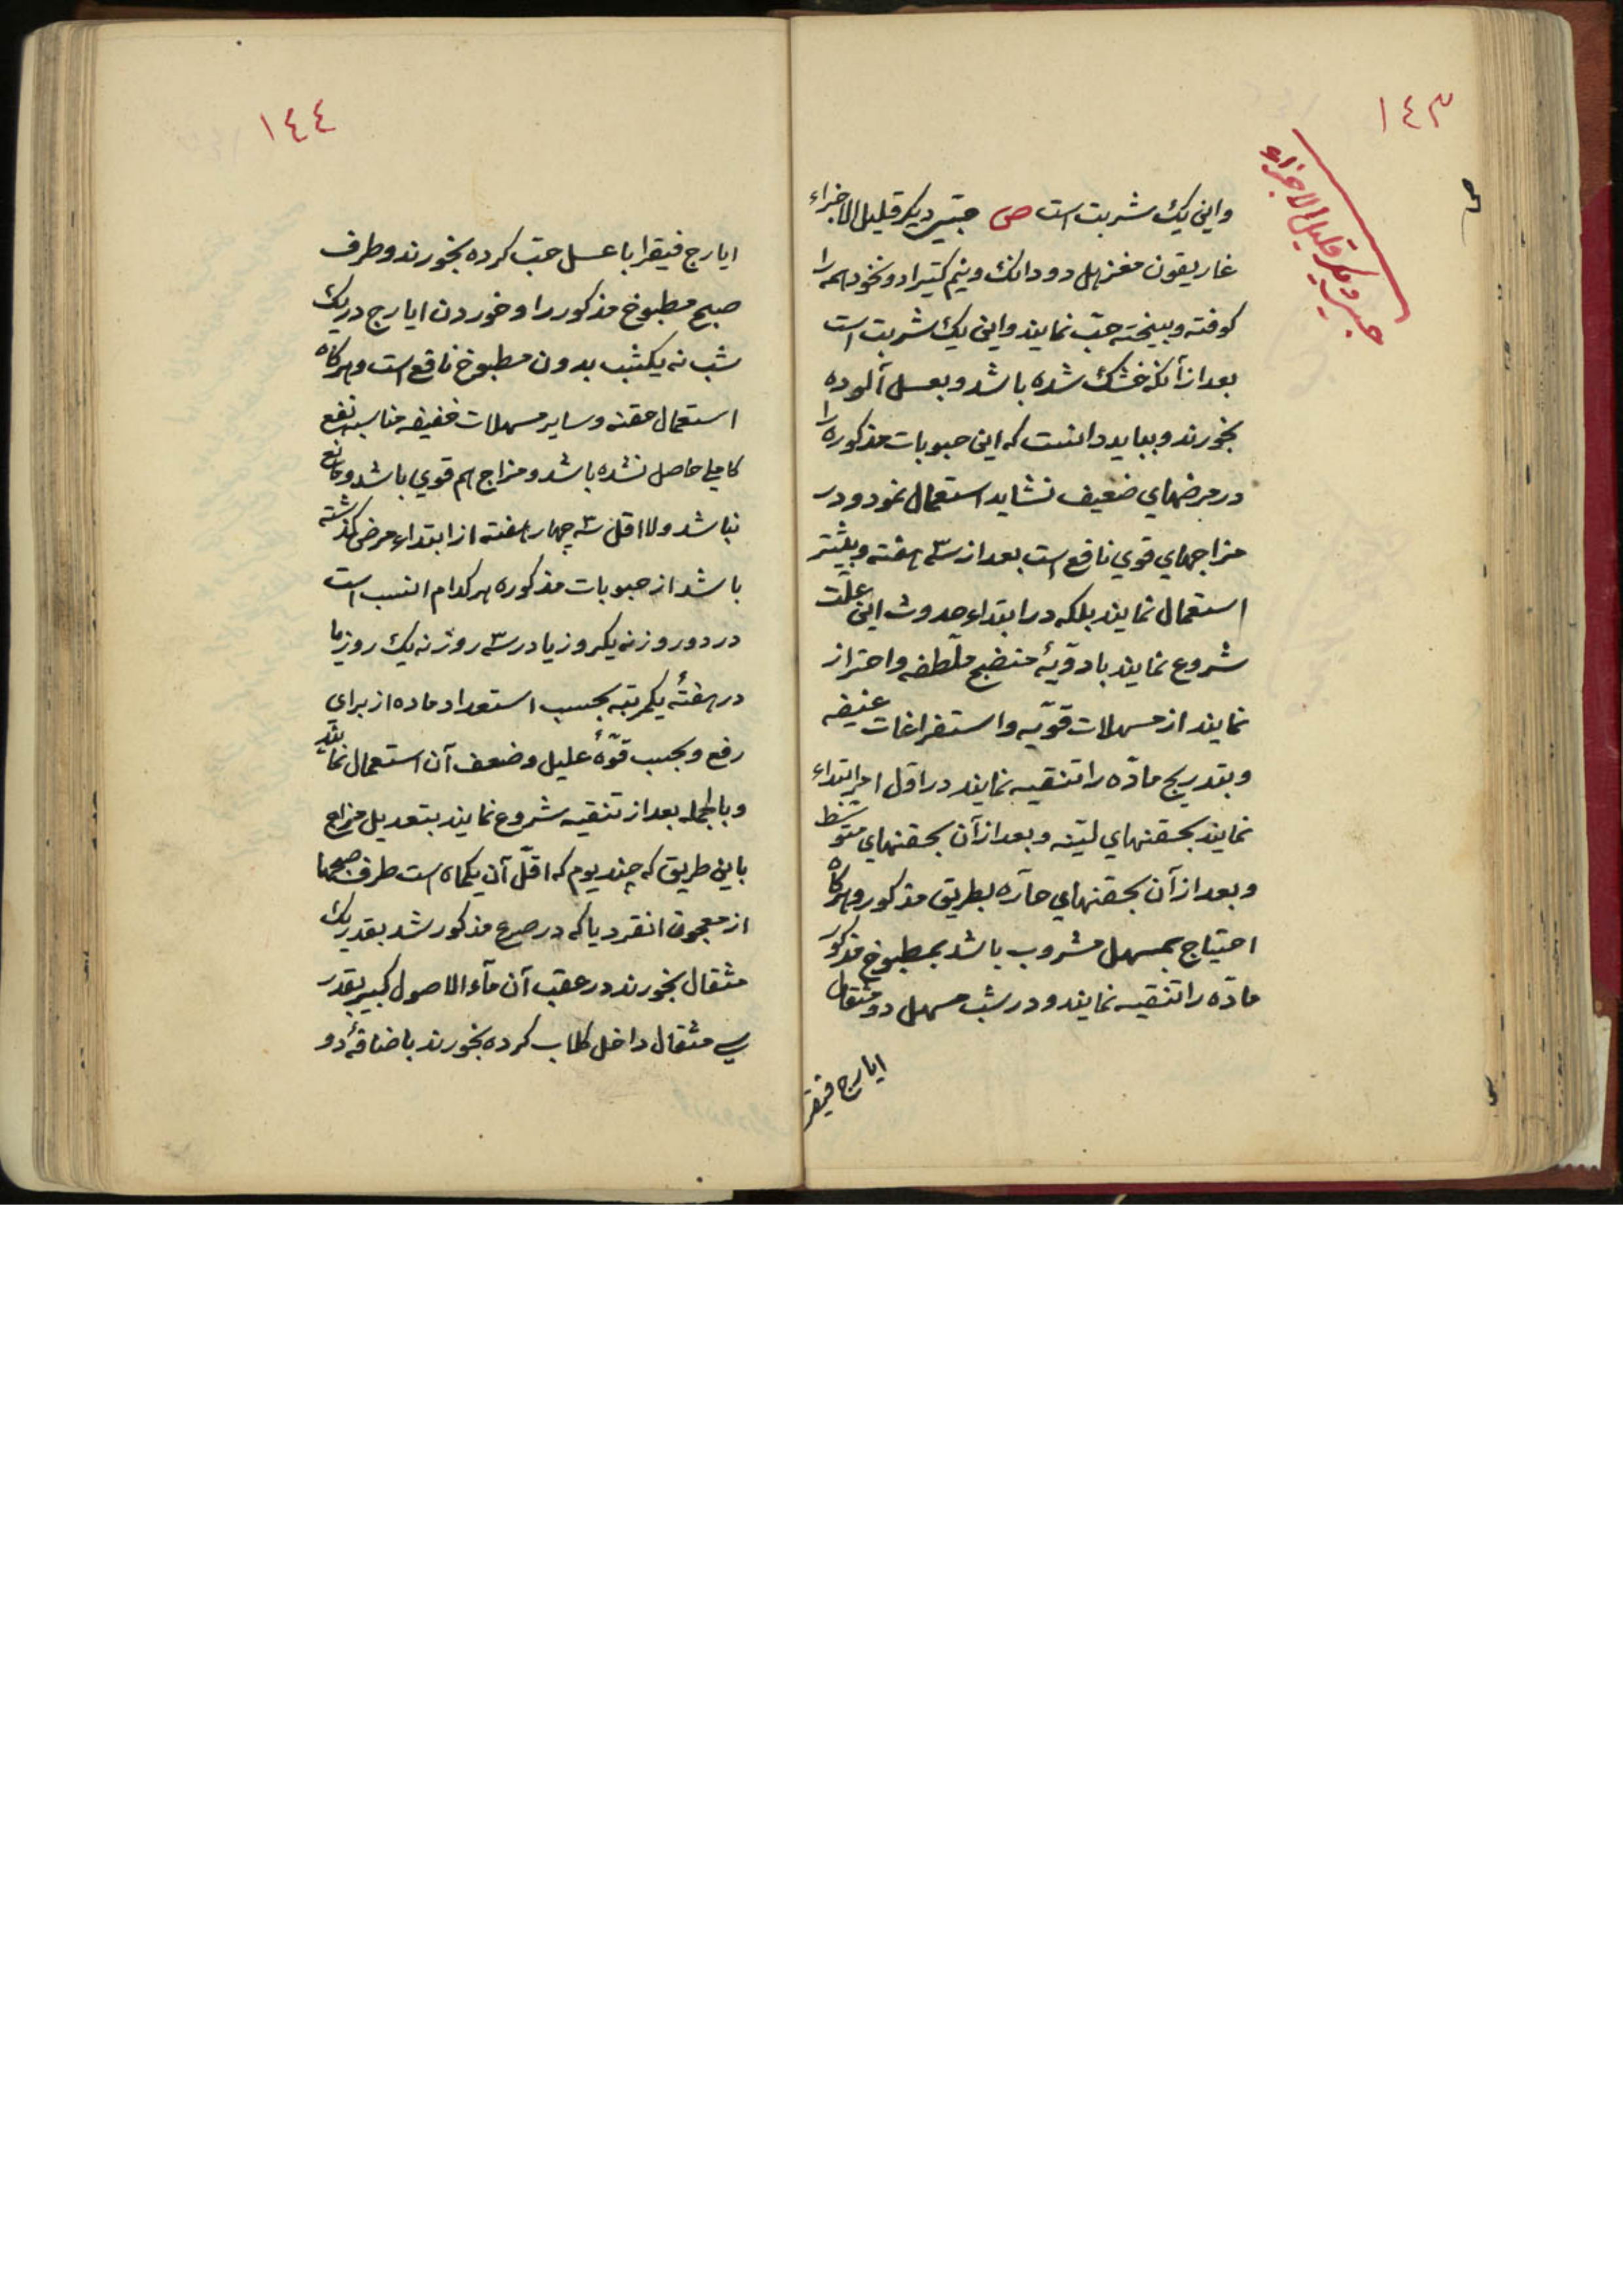 ١٤٣
حبی دیکر قلیل الاجزاء
واین یک شربت است ص حبّی دیکر قلیل الاجزاء
غاریقون مغزبل دو دانک ونیم کتیرا دو نخود همه را
کوفته وبیخته حبّ نمایند واین یک شربت است
بعد از آنکه خشک شده باشد وبعسل آلوده
بخورند وبباید دانست که این حبوبات مذکوره را
در مرضهای ضعیف نشاید استعمال نمود ودر
مزاجهای قوی نافع است بعد از سه هفته وبیشتر
استعمال نمایند بلکه در ابتداء حدوث این علّت
شروع نمایند بادویهٔ منضج ملطّفه واحتراز
نمایند از مسهلات قویّه واستفراغات عنیفه
وبتدریج مادّه را تنقیه نمایند در اوّل امر ابتداء
نمایند بحقنهای لیّنه وبعد از آن بحقنهای متوسّط
وبعد از آن بحقنهای حارّه بطریق مذکور وهرکاه
احتیاج بمسهل مشروب باشد بمطبوخ مذکور
مادّه را تنقیه نمایند ودر شب مسهل دو مثقال
ایارج فیقر
١٤٤
ایارج فیقرا با عسل حبّ کرده بخورند وطرف
صبح مطبوخ مذکور را وخوردن ایارج در یک
شب نه یکشب بدون مطبوخ نافع است وهرکاه
استعمال حقنه وسایر مسهلات خفیفه مناسبه نفع
کاملی حاصل نشده باشد ومزاج هم قوی باشد ومانع
نباشد ولا اقل سه چهار هفته از ابتداء مرض کذشته
باشد از حبوبات مذکوره هر کدام انسب است
در دو روز نه یکروز یا در سه روز نه یک روز یا
در هفتهٔ یکمرتبه بحسب استعداد ماده از برای
رفع وبحسب قوّهٔ علیل وضعف آن استعمال نمایند
وبالجمله بعد از تنقیه شروع نمایند بتعدیل مزاج
باین طریق که چند یوم که اقلّ آن یکماه است طرف صبحها
از معجون انقردیا که در صرع مذکور شد بقدر یک
مثقال بخورند در عقب آن مآء الاصول کبیر بقدر
سی مثقال داخل کلاب کرده بخورند باضافهٔ دو